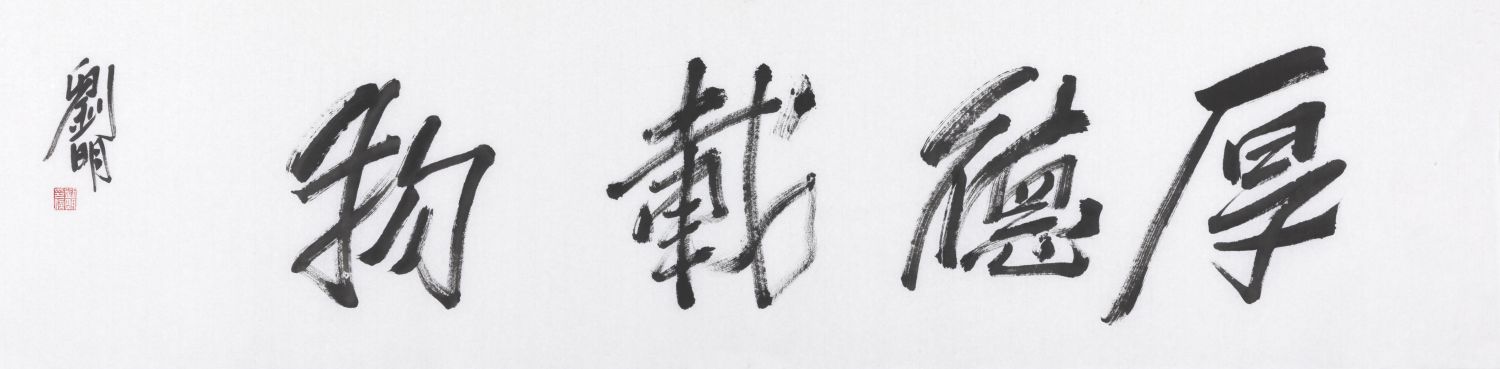 厚德載物
劉明